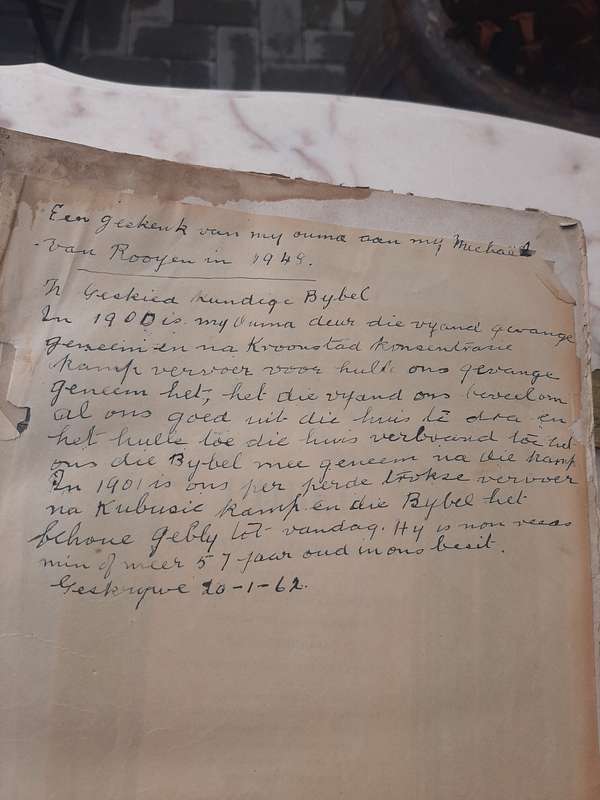 Een geskenk van my ouma aan my Michael
Van Rooyen in 1948.
'n Geskied kundige Bybel
In 1900 is my Ouma deur die vyand gevange
geneem en na Kroonstad konsentrasie
kamp vervoer voor hulle ons gevange
geneem het, het die vyand ons beveel om
al ons goed uit die huis te dra en
het hulle toe die huis verbrand toe het
ons die Bybel mee geneem na die kamp
In 1901 is ons per perde trokse vervoer
na Kubusie kamp en die Bybel het
behoue gebly tot vandag. Hy is non reeds
min of meer 57 jaar oud in ons besit.
Geskrywe 20-1-62.